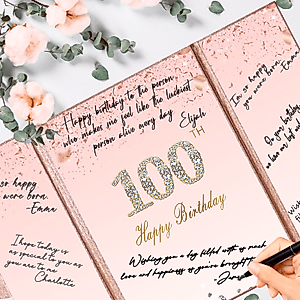 Happy birthday to the person
who makes me feel like the luckiest
person alive every day
Elijah
100TH
Happy Birthday
Wishing you a day filled with as much
love and happiness as you've brought
I'm so happy
you were born.
-Emma
I hope today is
as special to you
as you are to me
Charlotte
I'm so happy
you were born.
-Emma